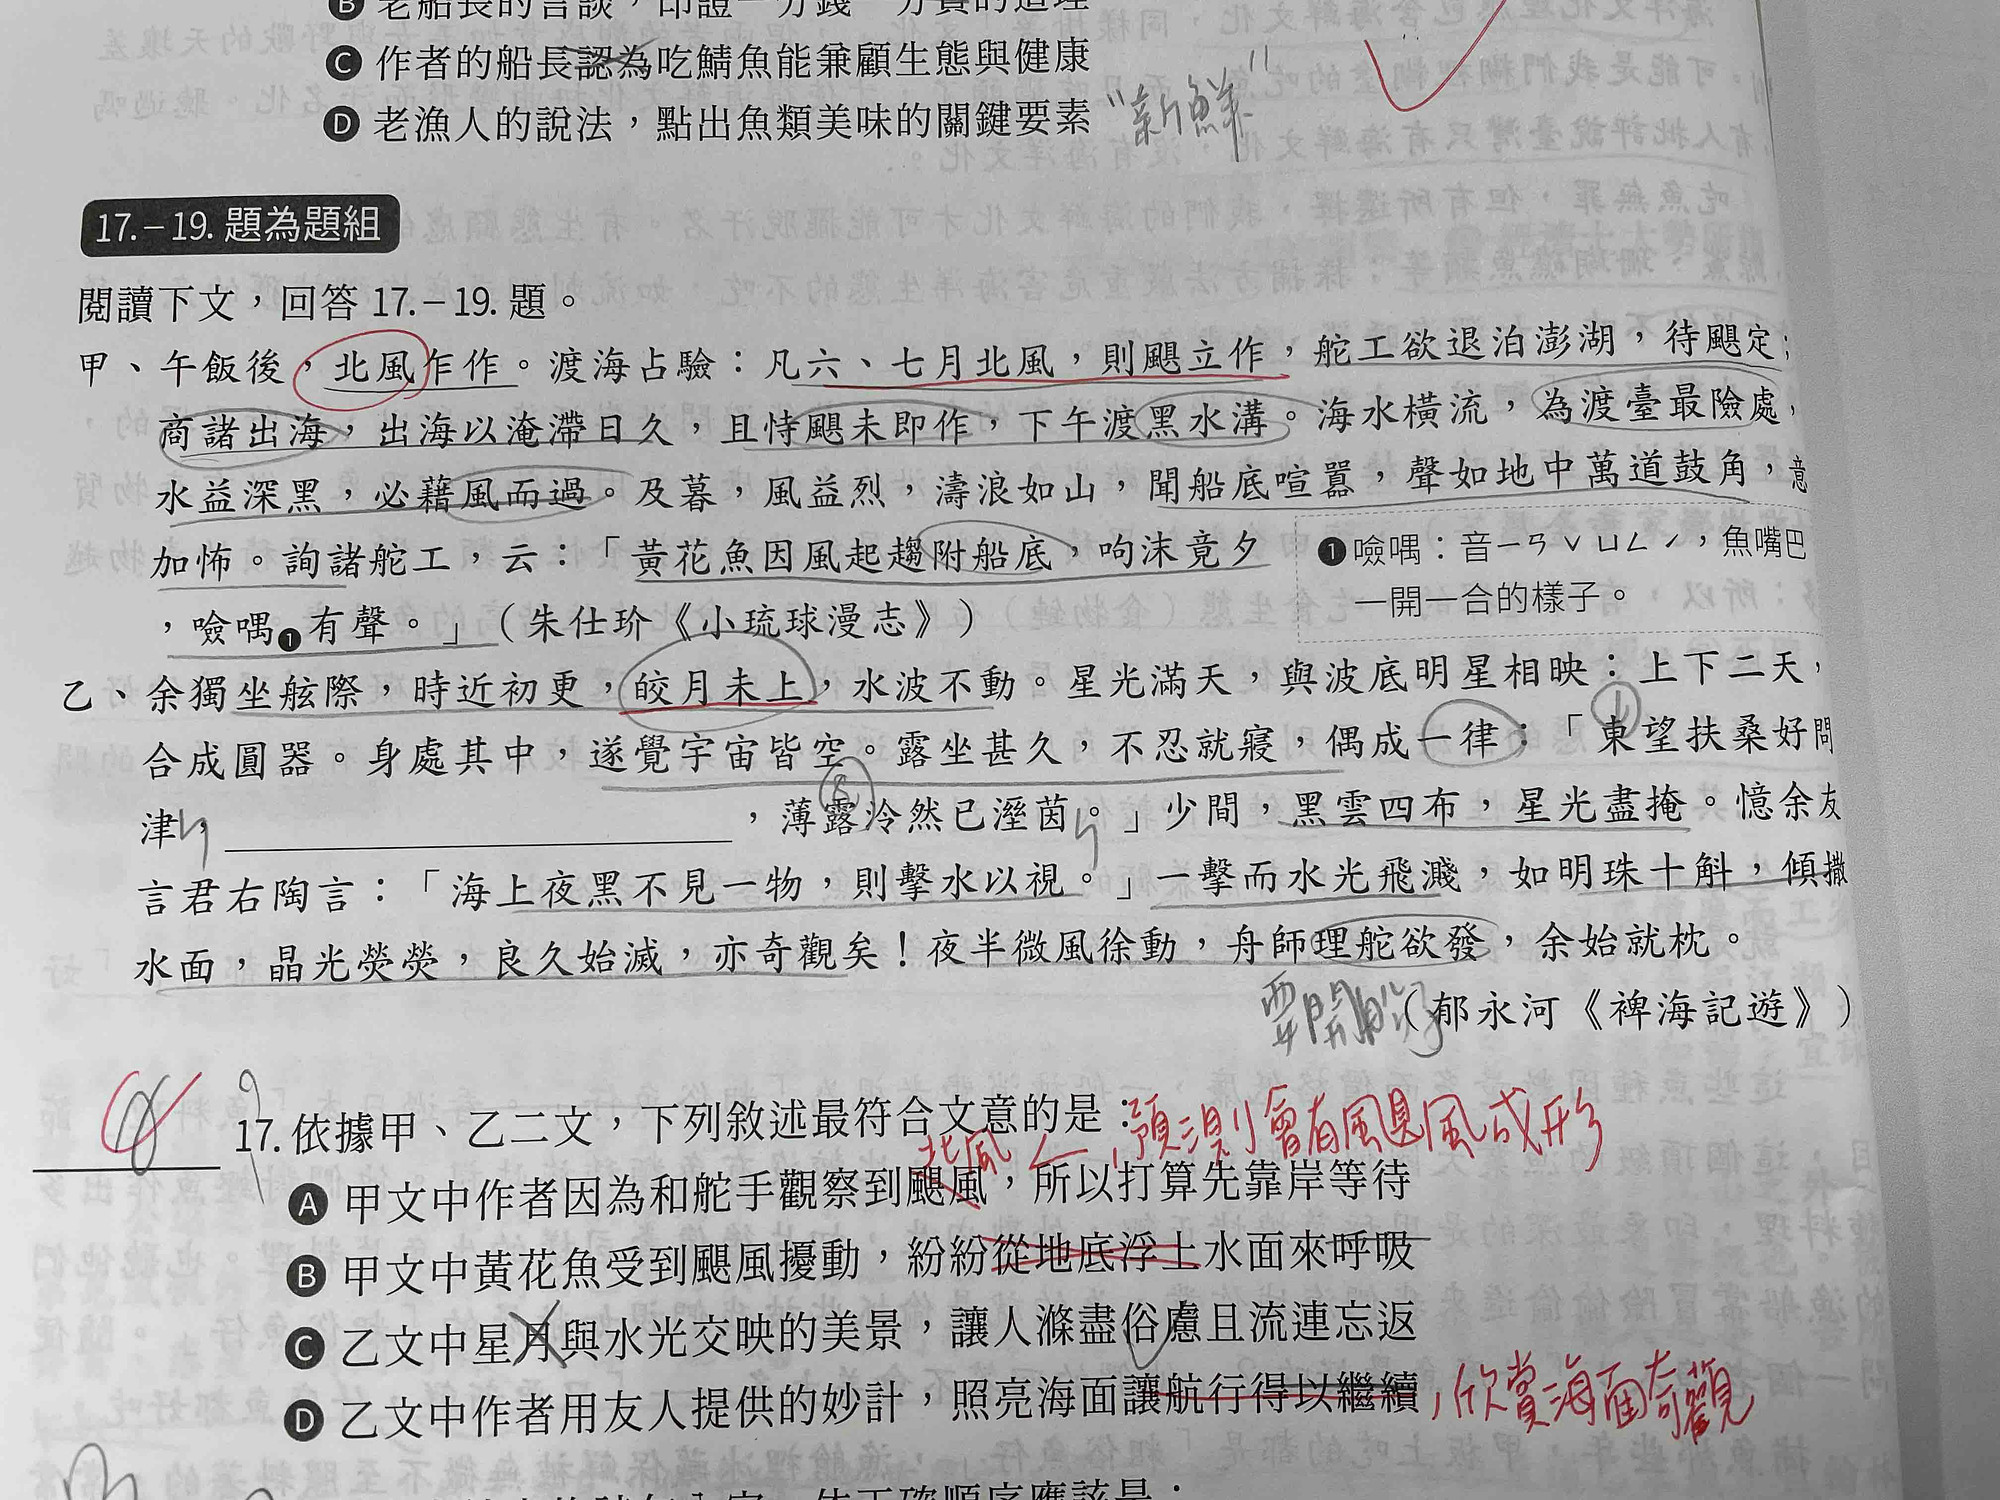 B 老船長的言談，印證一分錢一分貨的道理
C 作者的船長認為吃鯖魚能兼顧生態與健康
D 老漁人的說法，點出魚類美味的關鍵要素 "新鮮"
17.－19. 題為題組
閱讀下文，回答 17.－19. 題。
甲、午飯後，北風乍作。渡海占驗：凡六、七月北風，則颶立作，舵工欲退泊澎湖，待颶定；
商諸出海，出海以淹滯日久，且恃颶未即作，下午渡黑水溝。海水橫流，為渡臺最險處，
水益深黑，必藉風而過。及暮，風益烈，濤浪如山，聞船底喧囂，聲如地中萬道鼓角，意
加怖。詢諸舵工，云：「黃花魚因風起趨附船底，呴沫竟夕
，噞喁❶有聲。」（朱仕玠《小琉球漫志》）
❶噞喁：音ㄧㄢˇ ㄩㄥˊ，魚嘴巴
一開一合的樣子。
乙、余獨坐舷際，時近初更，皎月未上，水波不動。星光滿天，與波底明星相映：上下二天，
合成圓器。身處其中，遂覺宇宙皆空。露坐甚久，不忍就寢，偶成一律：「東望扶桑好問
津，＿＿＿＿＿＿＿＿，薄露泠然已溼茵。」少間，黑雲四布，星光盡掩。憶余友
言君右陶言：「海上夜黑不見一物，則擊水以視。」一擊而水光飛濺，如明珠十斛，傾撒
水面，晶光熒熒，良久始滅，亦奇觀矣！夜半微風徐動，舟師理舵欲發，余始就枕。
要開船了
（郁永河《裨海記遊》）
17. 依據甲、乙二文，下列敘述最符合文意的是：
北風 ，預測會有颶風成形
A 甲文中作者因為和舵手觀察到颶風，所以打算先靠岸等待
B 甲文中黃花魚受到颶風擾動，紛紛從地底浮上水面來呼吸
C 乙文中星月與水光交映的美景，讓人滌盡俗慮且流連忘返
D 乙文中作者用友人提供的妙計，照亮海面讓航行得以繼續，欣賞海面奇觀